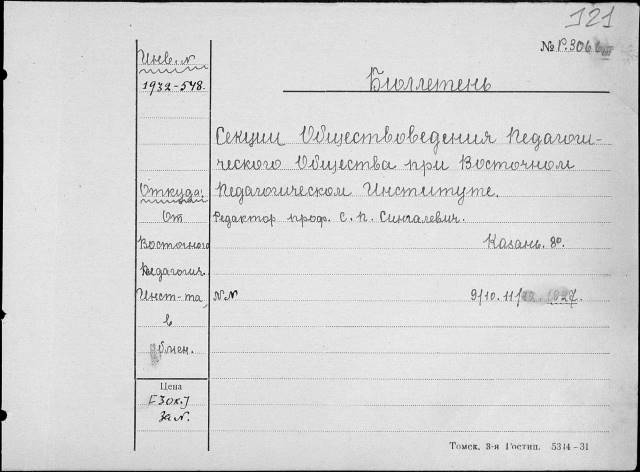 121
№ Г.306
Инв. №
1932-548.
Бюллетень
Секции Обществоведения Педагоги-
ческого Общества при Восточном
Педагогическом Институте.
Редактор проф. С. П. Сингалевич.
Казань. 8º.
Откуда:
От
Восточного
Педагогич.
Инст-та
в
обмен.
№№ 9/10. 11/ 1927.
Цена
[30к.]
за №.
Томск. 3-я Гостип. 5314-31